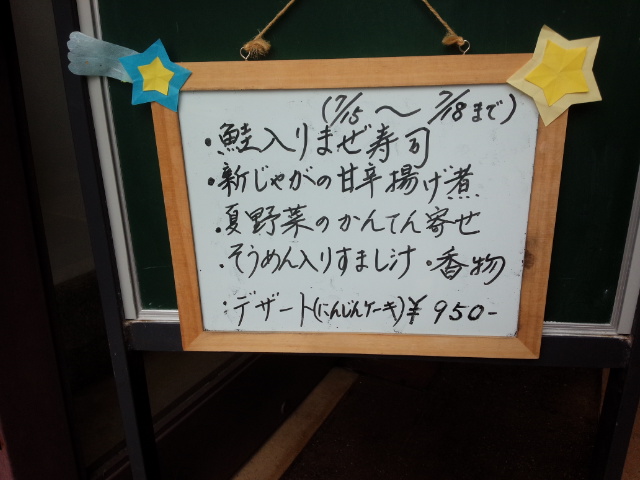 (7/15〜7/18まで)
・鮭入りまぜ寿司
・新じゃがの甘辛揚げ煮
・夏野菜のかんてん寄せ
・そうめん入りすまし汁・香物
・デザート(にんじんケーキ)¥950-